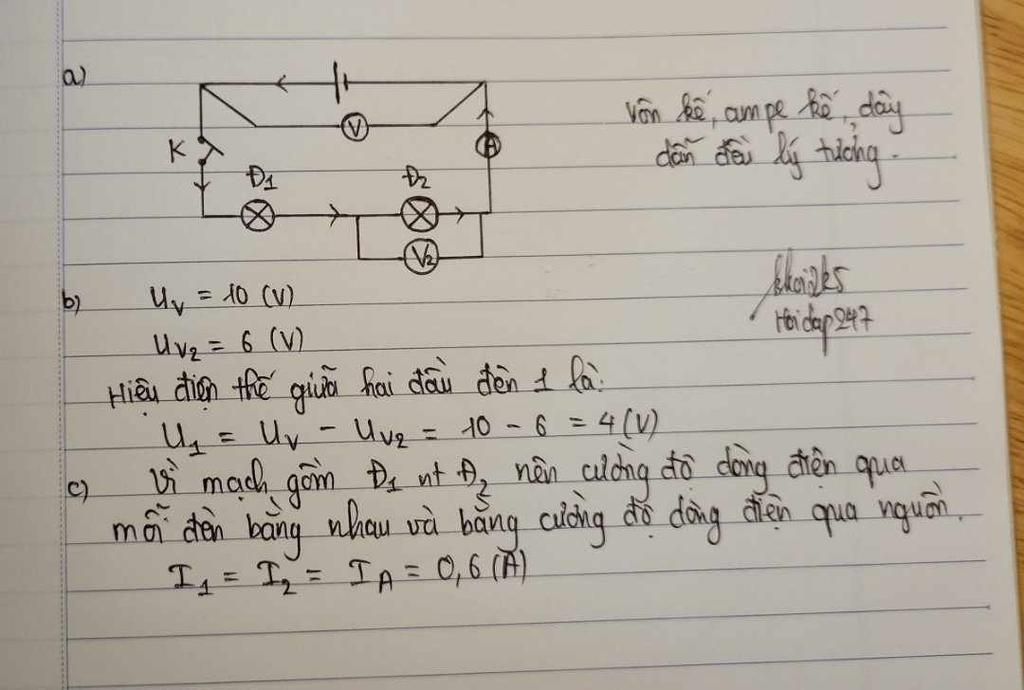 a)
V
A
K
Đ1
Đ2
V2
Vôn kế, ampe kế, dây
dẫn đều lý tưởng.
khoi2k5
Hoidap247
b) UV = 10 (V)
UV2 = 6 (V)
Hiệu điện thế giữa hai đầu đèn 1 là:
U1 = UV - UV2 = 10 - 6 = 4 (V)
c) Vì mạch gồm Đ1 nt Đ2 nên cường độ dòng điện qua
mỗi đèn bằng nhau và bằng cường độ dòng điện qua nguồn.
I1 = I2 = IA = 0,6 (A)